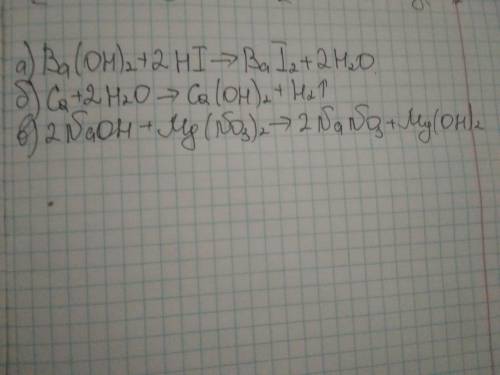 а) Ba(OH)₂+2HI→BaI₂+2H₂O
б) Ca+2H₂O→Ca(OH)₂+H₂↑
в) 2NaOH+Mg(NO₃)₂→2NaNO₃+Mg(OH)₂